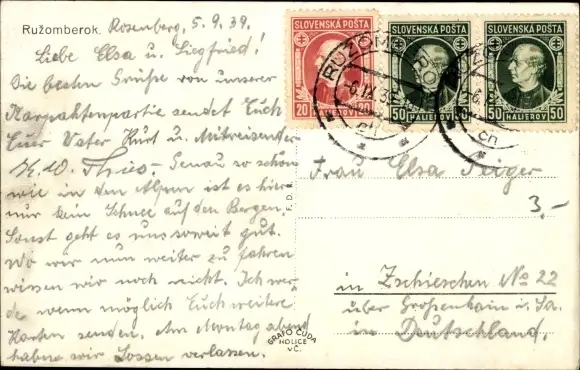 Ružomberok. Rosenberg, 5.9.39.
Liebe Elsa u. Siegfried!
Die besten Grüße von unserer
Karpathenpartie sendet Euch
Euer Vater Kurt u. Mitreisender
Genau so schön
wie in den Alpen ist es hier
nur kein Schnee auf den Bergen
Sonst geht es uns soweit gut.
Wo wir nun weiter zu fahren
wissen wir noch nicht. Ich wer-
de wenn möglich Euch weitere
Karten senden. Am Montag abend
haben wir verlassen.
SLOVENSKÁ POŠTA
20 HALIEROV 20
SLOVENSKÁ POŠTA
50 HALIEROV
SLOVENSKÁ POŠTA
HALIEROV 50
RUŽOMBEROK
Frau Elsa
3,-
in Zschieschen No 22
über Großenhain i. Sa.
in Deutschland.
GRAFO ČUDA
HOLICE
v Č.